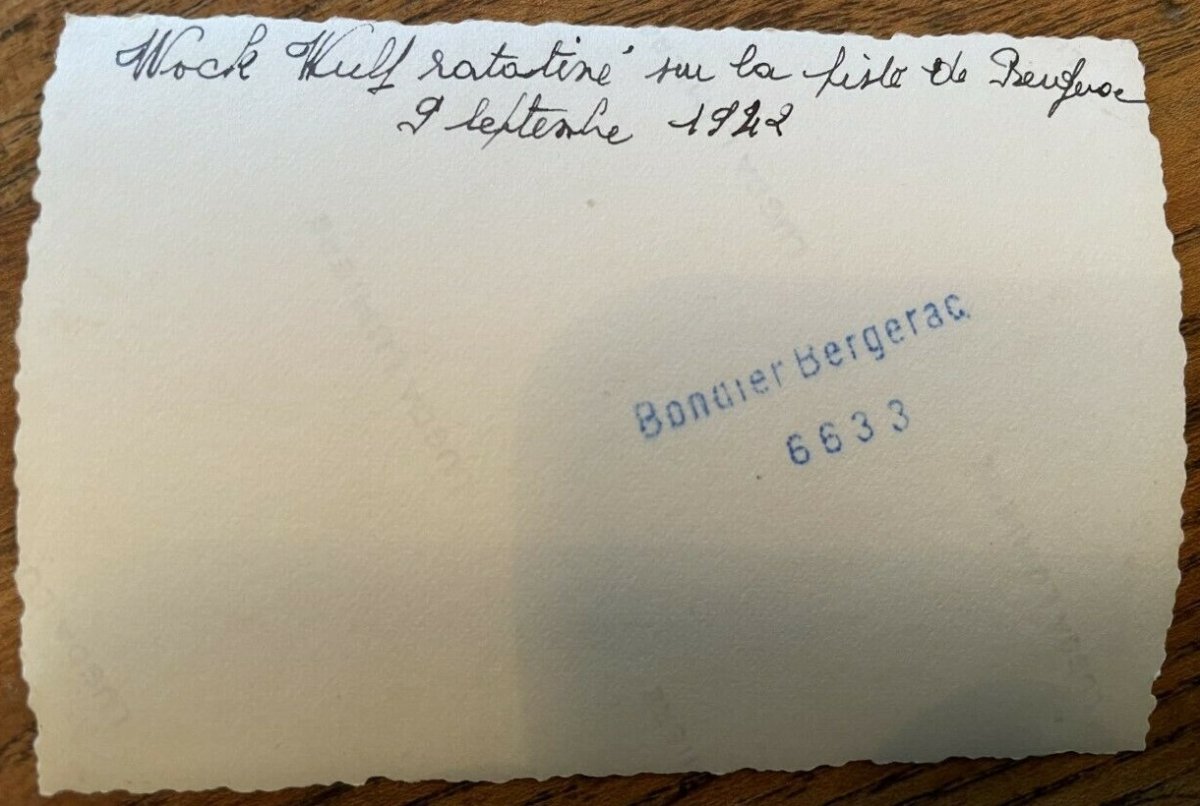 Wock Wulf ratatiné sur la piste de Bergerac
9 Septembre 1942
Bondier Bergerac
6633